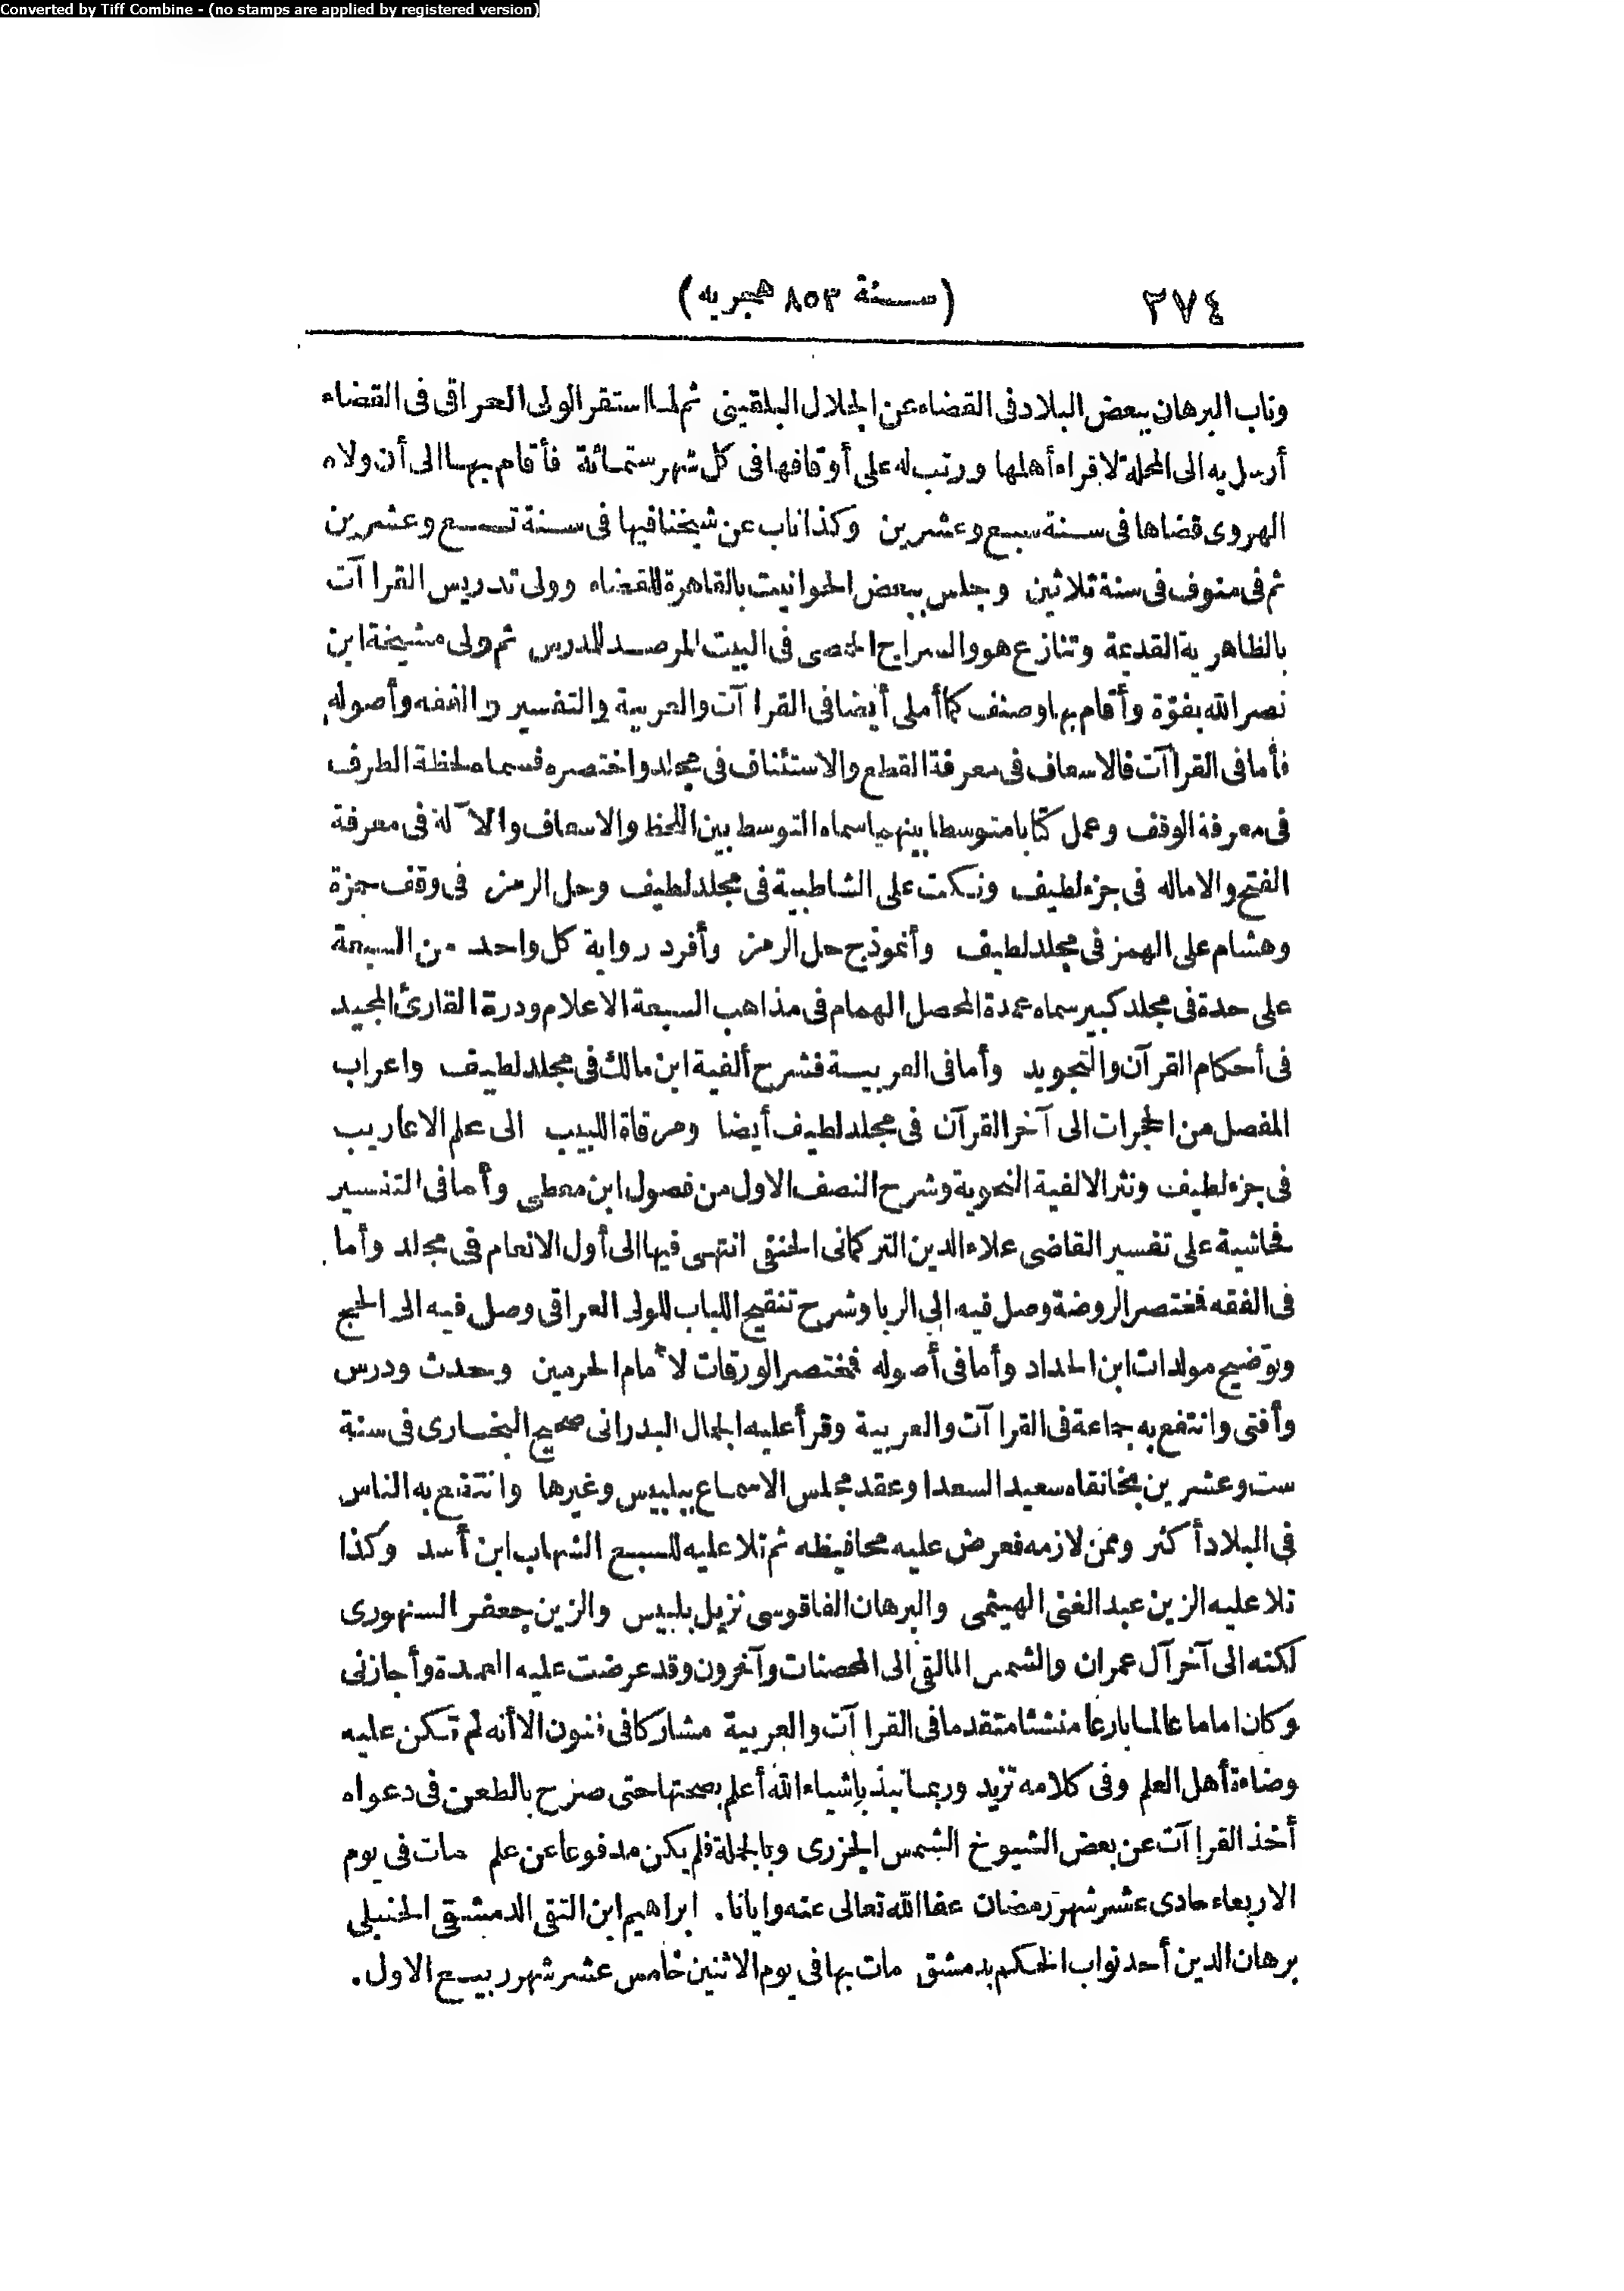 Converted by Tiff Combine - (no stamps are applied by registered version)
٣٧٤ (سنة ٨٥٣ هجريه)
وناب البرهان ببعض البلاد فى القضاء عن الجلال البلقينى ثم لما استقر الولى العراقى فى القضاء
أرسل به الى المحلة لاقراء أهلها ورتب له على أوقافها فى كل شهر ستمائة فأقام بها الى أن ولاه
الهروى قضاها فى سنة سبع وعشرين وكذا ناب عن شيخنا فيها فى سنة تسع وعشرين
ثم فى منوف فى سنة ثلاثين وجلس ببعض الحوانيت بالقاهرة للقضاء وولى تدريس القراآت
بالظاهرية القديمة وتنازع هو والسراج الحمصى فى البيت المرصد للمدرس ثم ولى مشيخة ابن
نصر الله بفوّة وأقام بها وصنف كما أملى أيضا فى القراآت والعربية والتفسير والفقه وأصوله
فأما فى القراآت فالاسعاف فى معرفة القطع والاستئناف فى مجلد واختصره فسماه لحظة الطرف
فى معرفة الوقف وعمل كتابا متوسطا بينهما سماه التوسط بين اللحظ والاسعاف والآلة فى معرفة
الفتح والاماله فى جزء لطيف ونكت على الشاطبية فى مجلد لطيف وحل الرمز فى وقف حمزة
وهشام على الهمز فى مجلد لطيف وأنموذج حل الرمز وأفرد رواية كل واحد من السبعة
على حدة فى مجلد كبير سماه عمدة المحصل الهمام فى مذاهب السبعة الاعلام ودرة القارئ المجيد
فى أحكام القرآن والتجويد وأما فى العربية فشرح ألفية ابن مالك فى مجلد لطيف واعراب
المفصل من الحجرات الى آخر القرآن فى مجلد لطيف أيضا ومرقاة اللبيب الى علم الاعاريب
فى جزء لطيف ونثر الالفية النحوية وشرح النصف الاول من فصول ابن معطى وأما فى التفسير
فحاشية على تفسير القاضى علاء الدين التركمانى الحنفى انتهى فيها الى أول الانعام فى مجلد وأما
فى الفقه فمختصر الروضة وصل فيه الى الربا وشرح تنقيح اللباب للولى العراقى وصل فيه الى الحج
وتوضيح مولدات ابن الحداد وأما فى أصوله فمختصر الورقات لامام الحرمين وحدث ودرس
وأفتى وانتفع به جماعة فى القراآت والعربية وقرأ عليه الجمال البدرانى صحيح البخارى فى سنة
ست وعشرين بخانقاه سعيد السعدا وعقد مجلس الاسماع ببلبيس وغيرها وانتفع به الناس
فى البلاد أكثر وممن لازمه فعرض عليه محافيظه ثم تلا عليه للسبع الشهاب ابن أسد وكذا
تلا عليه الزين عبد الغنى الهيثمى والبرهان الفاقوسى نزيل بلبيس والزين جعفر السنهورى
لكنه الى آخر آل عمران والشمس المالقى الى المحصنات وآخرون وقد عرضت عليه العمدة وأجازنى
وكان اماما عالما بارعا مفننا متقدما فى القراآت والعربية مشاركا فى فنون الا أنه لم تكن عليه
وضاءة أهل العلم وفى كلامه تزيد وربما نبذ باشياء الله أعلم بصحتها حتى صرح بالطعن فى دعواه
أخذ القراآت عن بعض الشيوخ الشمس الجزرى وبالجملة فلم يكن مدفوعا عن علم مات فى يوم
الاربعاء حادى عشر شهر رمضان عفا الله تعالى عنه وايانا. ابراهيم ابن التقى الدمشقى الحنبلى
برهان الدين أحد نواب الحكم بدمشق مات بها فى يوم الاثنين خامس عشر شهر ربيع الاول.